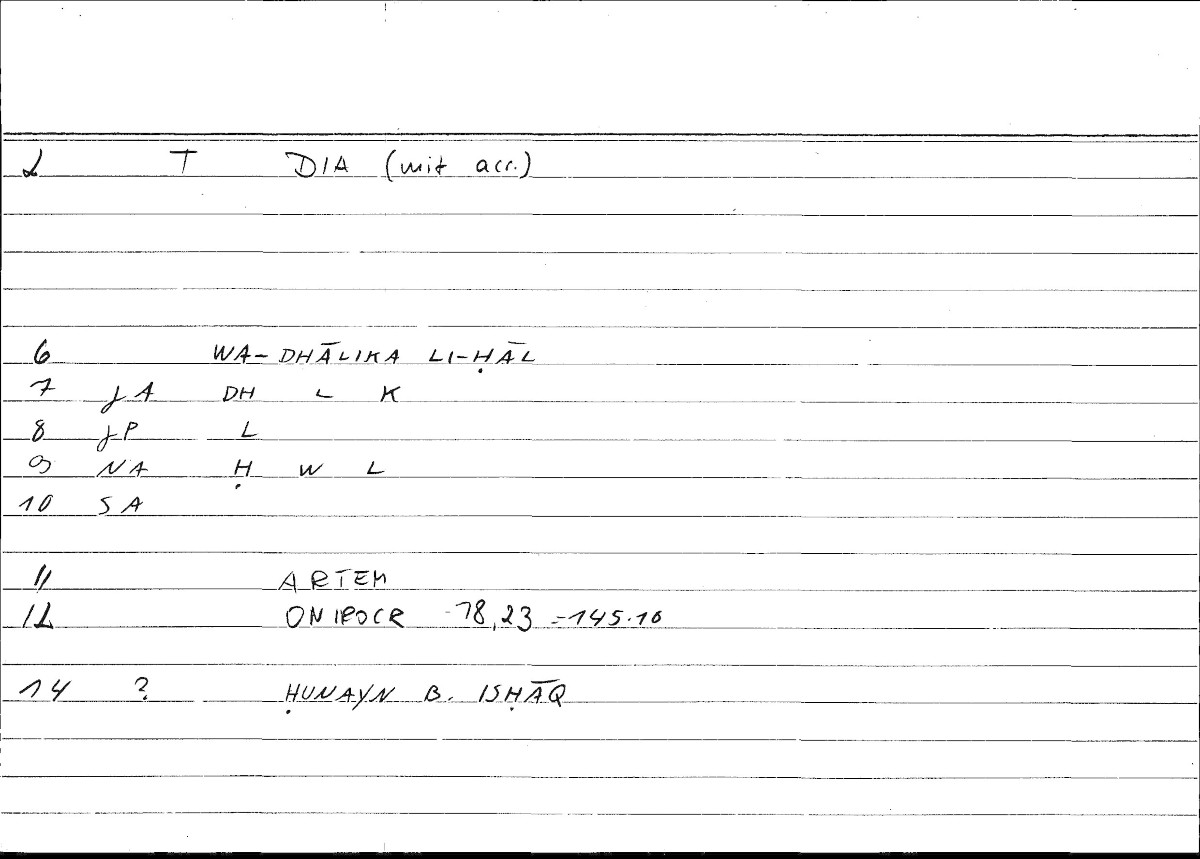 2 T DIA (mit acc.)
6 WA-DHĀLIKA LI-ḤĀL
7 JA DH L K
8 JP L
9 NA Ḥ W L
10 SA
11 ARTEM
12 ONIROCR 78,23 = 145.10
14 ? ḤUNAYN B. ISḤĀQ